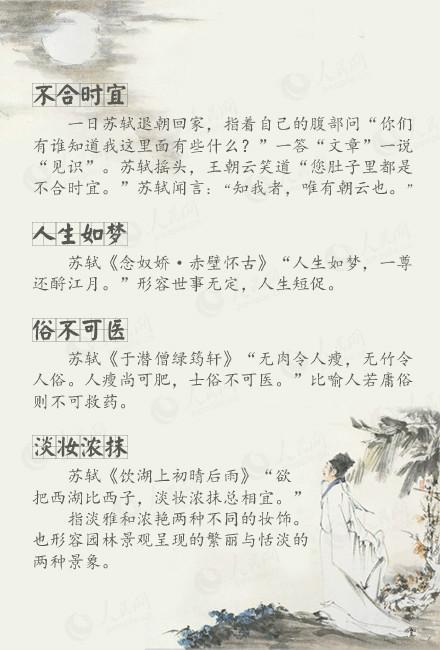 不合时宜
一日苏轼退朝回家，指着自己的腹部问“你们
有谁知道我这里面有些什么？”一答“文章”一说
“见识”。苏轼摇头，王朝云笑道“您肚子里都是
不合时宜。”苏轼闻言：“知我者，唯有朝云也。”
人生如梦
苏轼《念奴娇·赤壁怀古》“人生如梦，一尊
还酹江月。”形容世事无定，人生短促。
俗不可医
苏轼《于潜僧绿筠轩》“无肉令人瘦，无竹令
人俗。人瘦尚可肥，士俗不可医。”比喻人若庸俗
则不可救药。
淡妆浓抹
苏轼《饮湖上初晴后雨》“欲
把西湖比西子，淡妆浓抹总相宜。”
指淡雅和浓艳两种不同的妆饰。
也形容园林景观呈现的繁丽与恬淡的
两种景象。
人民网